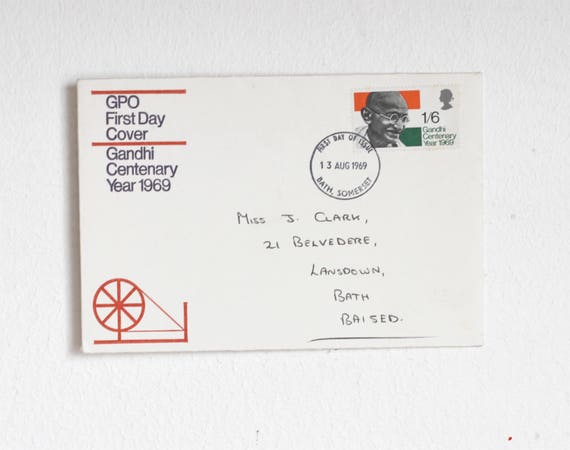 GPO
First Day
Cover
Gandhi
Centenary
Year 1969
1/6
Gandhi
Centenary
Year 1969
FIRST DAY OF ISSUE
13 AUG 1969
BATH, SOMERSET
Miss J. Clark,
21 Belvedere,
Lansdown,
Bath
BA15ED.